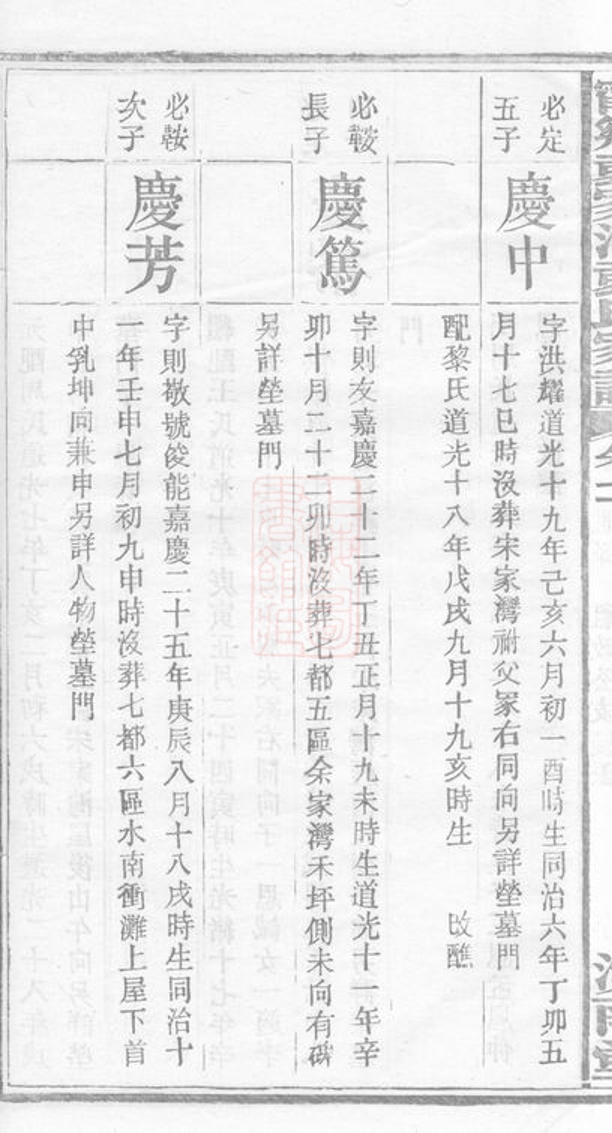 必定
五子
慶中
字洪耀道光十九年己亥六月初一酉時生同治六年丁卯五
月十七巳時沒葬宋家灣祔父冢右同向另詳塋墓門
配黎氏道光十八年戊戌九月十九亥時生 改醮
必鞍
長子
慶篤
字則友嘉慶二十二年丁丑正月十九未時生道光十一年辛
卯十月二十二卯時沒葬七都五區余家灣禾坪側未向有碑
另詳塋墓門
必鞍
次子
慶芳
字則敬號俊能嘉慶二十五年庚辰八月十八戌時生同治十
一年壬申七月初九申時沒葬七都六區水南衝灘上屋下首
中乳坤向兼申另詳人物塋墓門